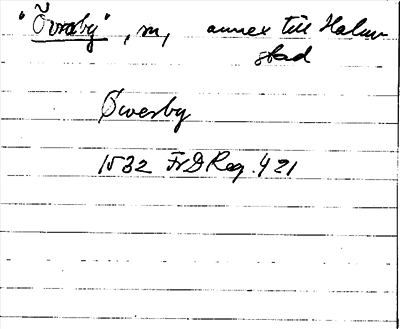 "Övraby", sn, annex till Halm-
stad
Øwersby
1532 FrdReg. 421